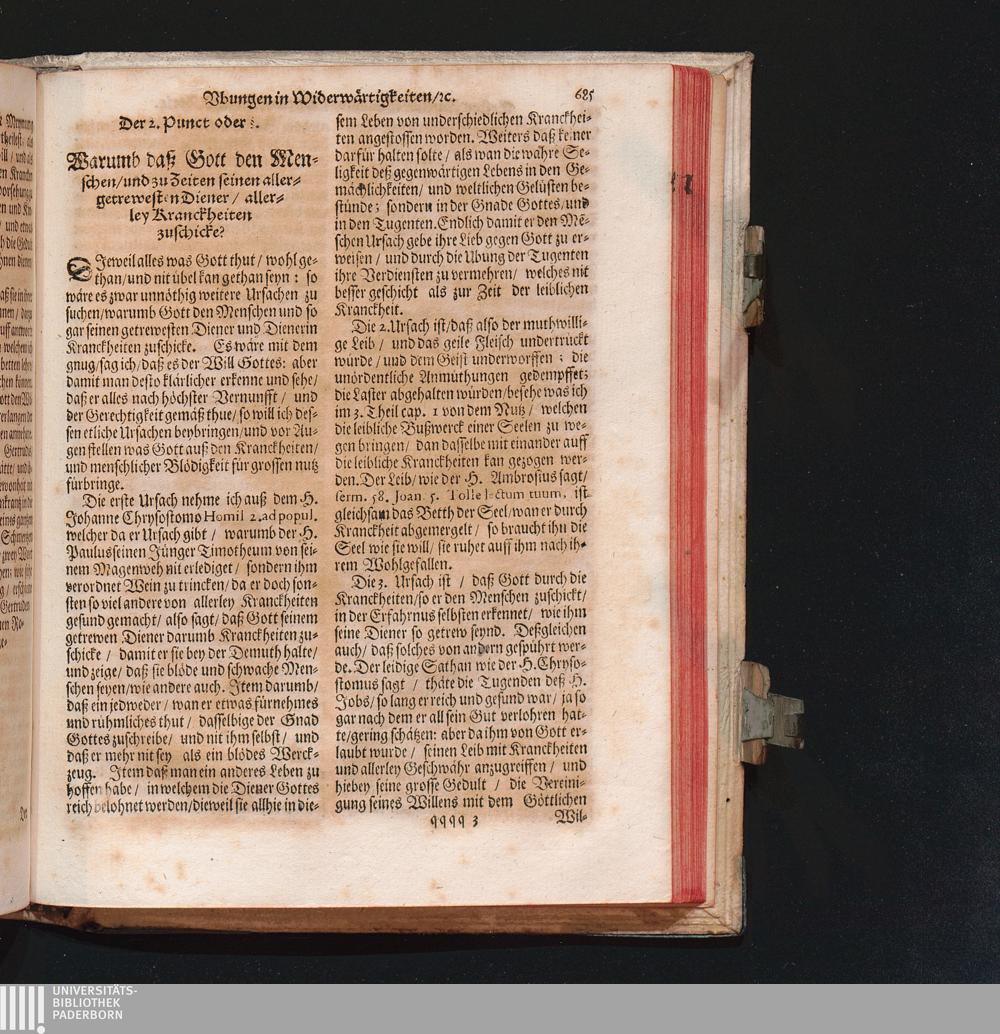 Vbungen in Widerwärtigkeiten/ꝛc. 685
Der 2. Punct oder §.
Warumb daß Gott den Men-
schen/und zu Zeiten seinen aller-
getrewesten Diener / aller-
ley Kranckheiten
zuschicke?
DJeweil alles was Gott thut/ wohl ge-
than/und nit übel kan gethan seyn: so
wäre es zwar unnöthig weitere Ursachen zu
suchen/warumb Gott den Menschen und so
gar seinen getrewesten Diener und Dienerin
Kranckheiten zuschicke. Es wäre mit dem
gnug/sag ich/daß es der Will Gottes: aber
damit man desto klärlicher erkenne und sehe/
daß er alles nach höchster Vernunfft / und
der Gerechtigkeit gemäß thue/so will ich des-
sen etliche Ursachen beybringen/und vor Au-
gen stellen was Gott auß den Kranckheiten/
und menschlicher Blödigkeit für grossen nutz
fürbringe.
Die erste Ursach nehme ich auß dem H.
Johanne Chrysostomo Homil 2. ad popul.
welcher da er Ursach gibt / warumb der H.
Paulus seinen Jünger Timotheum von sei-
nem Magenweh nit erlediget / sondern ihm
verordnet Wein zu trincken/da er doch son-
sten so viel andere von allerley Kranckheiten
gesund gemacht/ also sagt/ daß Gott seinem
getrewen Diener darumb Kranckheiten zu-
schicke / damit er sie bey der Demuth halte/
und zeige/ daß sie blöde und schwache Men-
schen seyen/wie andere auch. Jtem darumb/
daß ein jedweder / wan er etwas fürnehmes
und rühmliches thut / dasselbige der Gnad
Gottes zuschreibe/ und nit ihm selbst/ und
daß er mehr nit sey als ein blödes Werck-
zeug. Jtem daß man ein anderes Leben zu
hoffen habe / in welchem die Diener Gottes
reich belohnet werden/dieweil sie allhie in die-
sem Leben von underschiedlichen Kranckhei-
ten angestossen worden. Weiters daß keiner
darfür halten solte / als wan die wahre Se-
ligkeit deß gegenwärtigen Lebens in den Ge-
mächlichkeiten/ und weltlichen Gelüsten be-
stünde; sondern in der Gnade Gottes/und
in den Tugenten. Endlich damit er den Mẽ-
schen Ursach gebe ihre Lieb gegen Gott zu er-
weisen / und durch die Übung der Tugenten
ihre Verdiensten zu vermehren/ welches nit
besser geschicht als zur Zeit der leiblichen
Kranckheit.
Die 2. Ursach ist/daß also der muthwilli-
ge Leib / und das geile Fleisch undertruckt
würde / und dem Geist underworffen; die
unördentliche Anmuthungen gedempffet;
die Laster abgehalten würden/besehe was ich
im 3. Theil cap. 1 von dem Nutz / welchen
die leibliche Bußwerck einer Seelen zu we-
gen bringen/ dan dasselbe mit einander auff
die leibliche Kranckheiten kan gezogen wer-
den. Der Leib/ wie der H. Ambrosius sagt/
serm. 58. Joan. 5. Tolle lectum tuum, ist
gleichsam das Betth der Seel/wan er durch
Kranckheit abgemergelt / so braucht ihn die
Seel wie sie will/ sie ruhet auff ihm nach ih-
rem Wohlgefallen.
Die 3. Ursach ist / daß Gott durch die
Kranckheiten/so er den Menschen zuschickt/
in der Erfahrnus selbsten erkennet/ wie ihm
seine Diener so getrew seynd. Deßgleichen
auch/ daß solches von andern gespührt wer-
de. Der leidige Sathan wie der H. Chryso-
stomus sagt / thäte die Tugenden deß H.
Jobs/ so lang er reich und gesund war/ ja so
gar nach dem er all sein Gut verlohren hat-
te/gering schätzen: aber da ihm von Gott er-
laubt wurde / seinen Leib mit Kranckheiten
und allerley Geschwähr anzugreiffen / und
hiebey seine grosse Gedult / die Vereini-
gung seines Willens mit dem Göttlichen
qqqq 3 Wil-
UNIVERSITÄTS-
BIBLIOTHEK
PADERBORN